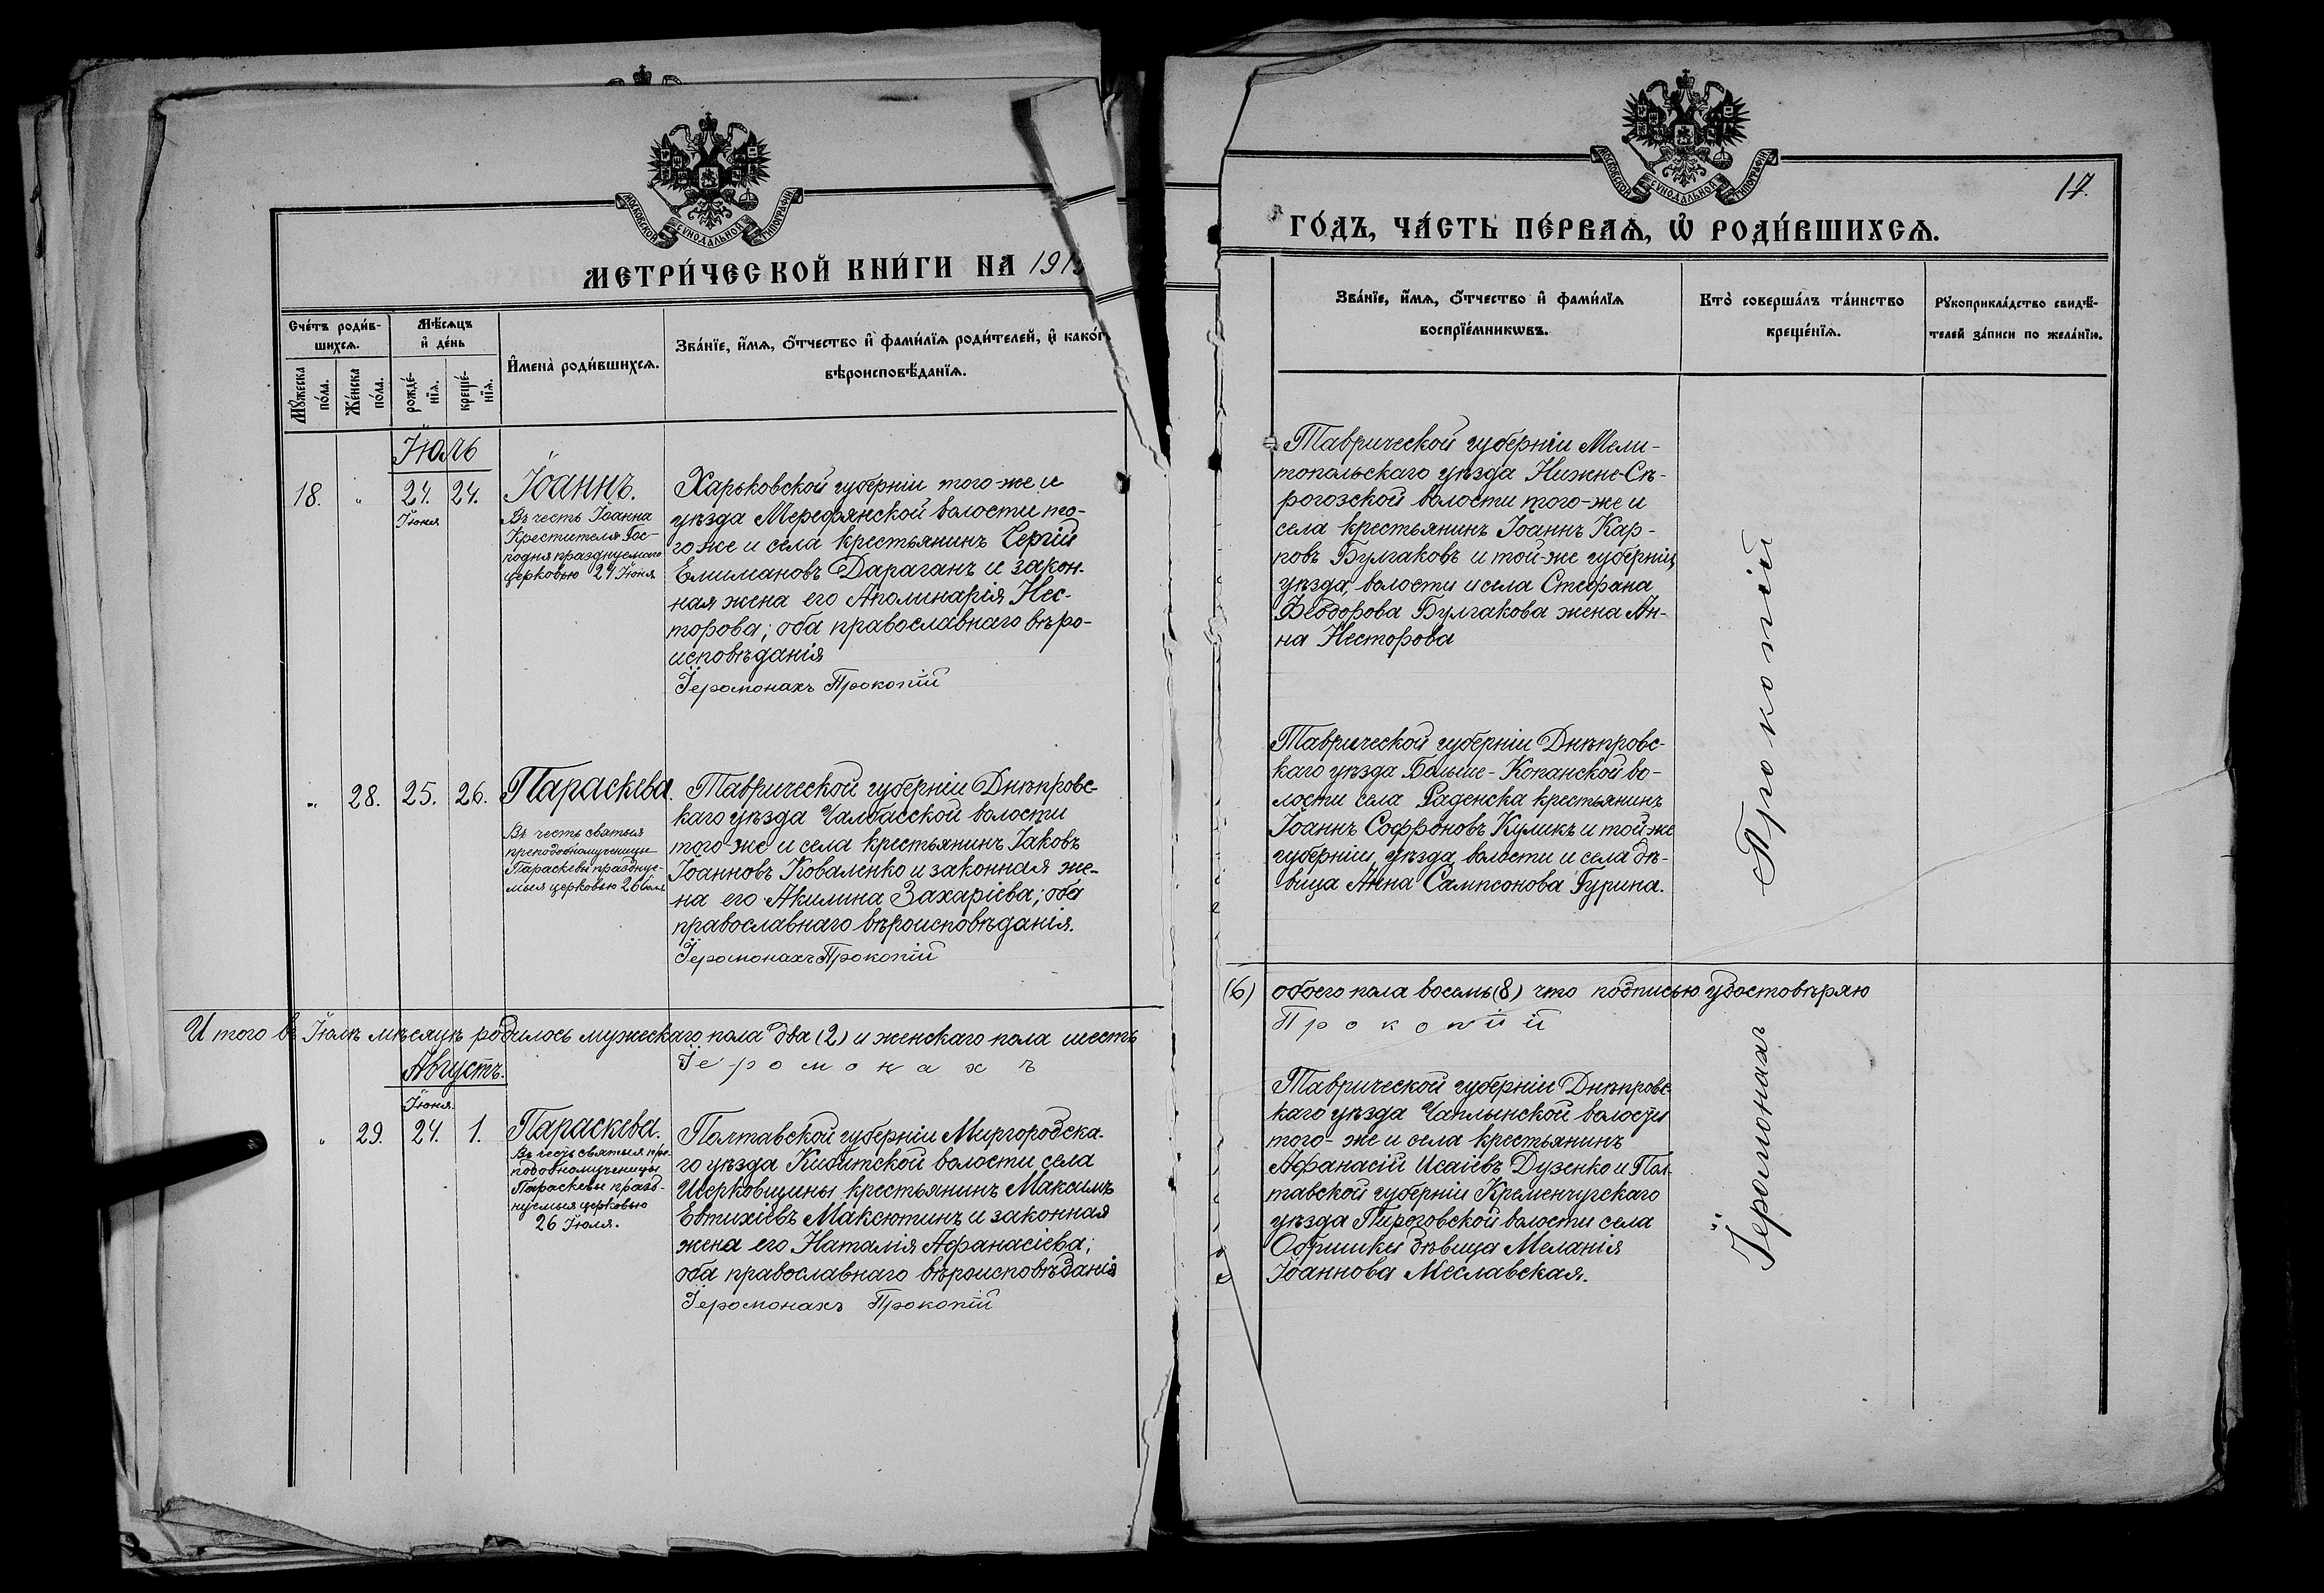 МОСКОВСКОЙ СѴНОДАЛЬНОЙ ТИПОГРАФІИ
МЕТРИ́ЧЕСКОЙ КНИ́ГИ НА 191
Сче́тъ роди́в-
шихсѧ.
Мѣ́сѧцъ
и҆ де́нь
И҆мена̀ роди́вшихсѧ.
Зва́нїе, и҆́мѧ, ѻ҆́тчество и҆ фами́лїѧ роди́телей, и҆ како́гѡ
вѣроисповѣ́данїѧ.
Мꙋ́жеска
по́ла.
Же́нска
по́ла.
рожде́-
нїѧ.
креще́-
нїѧ.
Іюль
18. " 24. 24. Іоаннъ.
Іюня
Въ честь Іоанна
Крестителя Гос-
подня празднуемаго
церковью 24 Іюня
Харьковской губерніи того-же и
уѣзда Мерефянской волости то-
го же и села крестьянинъ Сергій
Елимановъ Дараганъ и закон-
ная жена его Аполинарія Нес-
торова; оба православнаго вѣро-
исповѣданія
Іеромонахъ Прокопій
" 28. 25. 26. Параскева.
Въ честь святыя
преподобномученицы
Параскевы празднуе-
мыя церковью 26 Іюля
Таврической губерніи Днѣпровс-
каго уѣзда Чалбасской волости
того-же и села крестьянинъ Іаковъ
Іоанновъ Коваленко и законная же-
на его Акилина Захаріева; оба
православнаго вѣроисповѣданія.
Іеромонахъ Прокопій
И того въ Іюлѣ мѣсяцѣ родилось мужескаго пола два (2) и женскаго пола шесть
Іеромонахъ
Августъ.
Іюня.
" 29. 24. 1. Параскева.
Въ честь святыя пре-
подобномученицы
Параскевы празд-
нуемыя церковью
26 Іюля.
Полтавской губерніи Миргородска-
го уѣзда Кибитской волости села
крестьянинъ Максимъ
Евтихіевъ Максютинъ и законная
жена его Наталія Афанасіева;
оба православнаго вѣроисповѣданія
Іеромонахъ Прокопій
МОСКОВСКОЙ СѴНОДАЛЬНОЙ ТИПОГРАФІИ
17.
ГО́ДЪ, ЧА́СТЬ ПЕ́РВАѦ, Ѡ҆ РОДИ́ВШИХСѦ.
Зва́нїе, и҆́мѧ, ѻ҆́тчество и҆ фами́лїѧ
воспрїе́мникѡвъ.
Кто̀ соверша́лъ та́инство
креще́нїѧ.
Рꙋкоприкла́дство свидѣ́-
телей за́писи по жела́нїю.
Таврической губерніи Мели-
топольскаго уѣзда Нижне-Сѣ-
рогозской волости того-же и
села крестьянинъ Іоаннъ Кар-
повъ Булгаковъ и той-же губерніи,
уѣзда, волости и села Стефана
Ѳеодорова Булгакова жена Ан-
на Несторова
Таврической губерніи Днѣпровс-
каго уѣзда Больше-Копанской во-
лости села Раденска крестьянинъ
Іоаннъ Софроновъ Куликъ и той-же
губерніи, уѣзда, волости и села дѣ-
вица Анна Сампсонова Гурина.
Прокопій
(6) обоего пола восемь (8) что подписью удостовѣряю
Прокопій
Таврической губерніи Днѣпровс-
каго уѣзда Чаплынской волости
того-же и села крестьянинъ
Афанасій Исаіевъ Дузенко и Пол-
тавской губерніи Кременчугскаго
уѣзда Пироговской волости села
дѣвица Меланія
Іоаннова Меславская.
Іеромонахъ